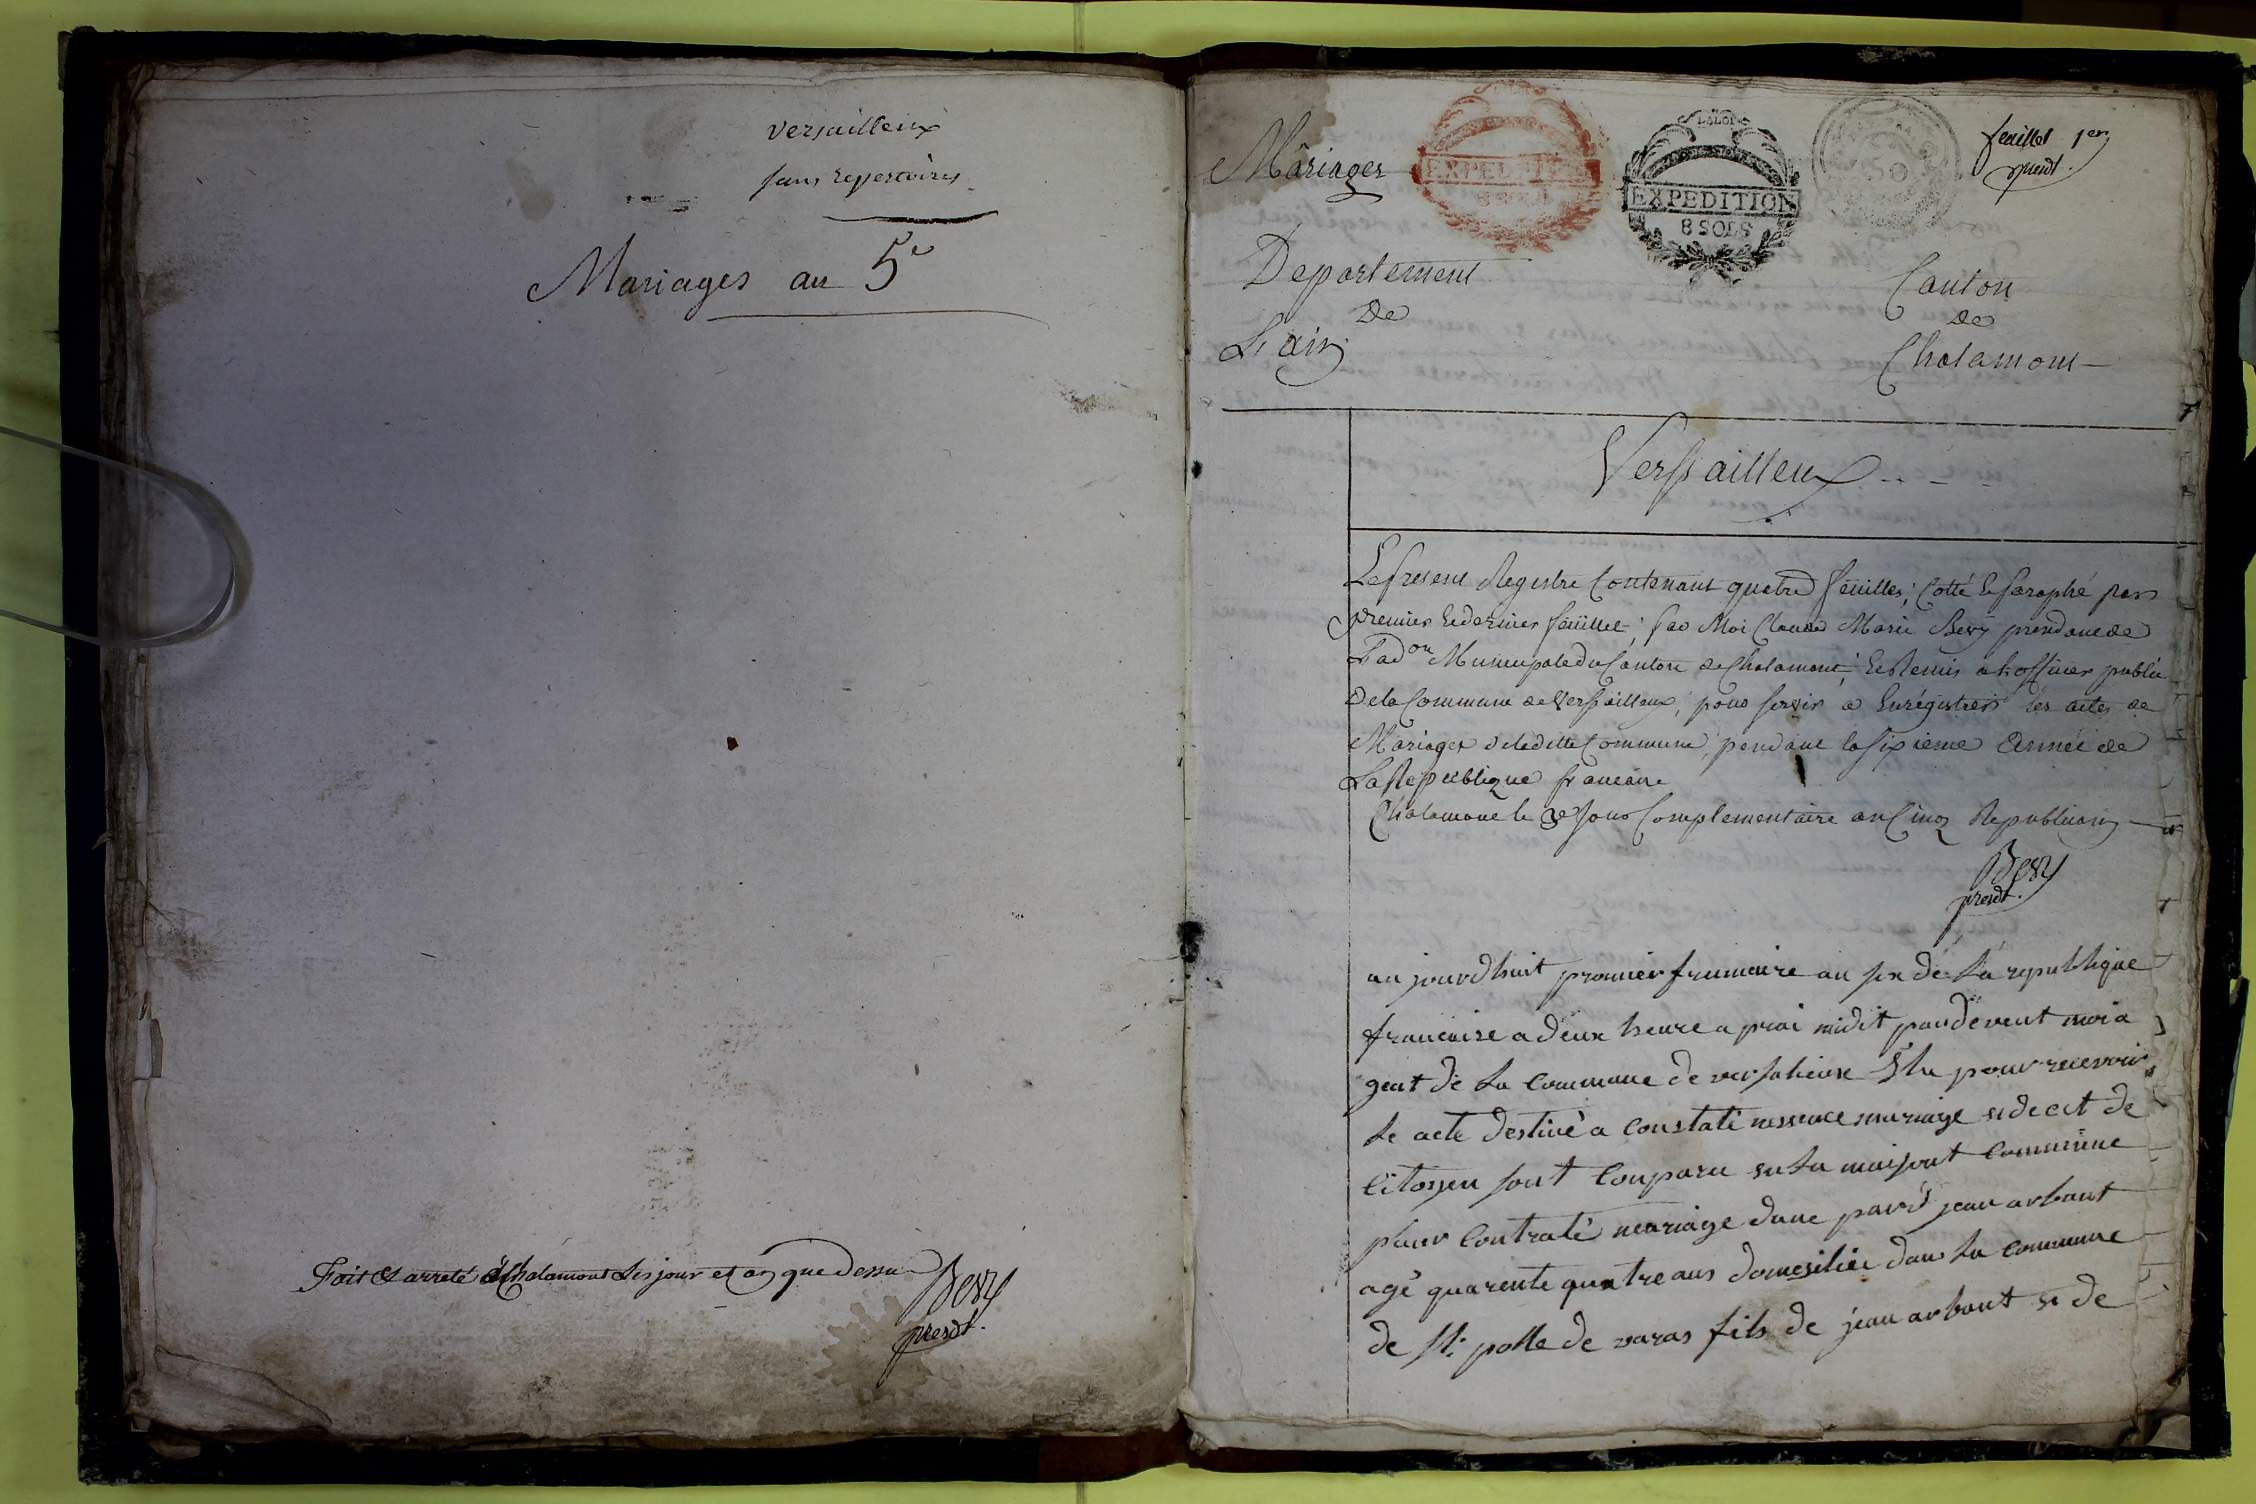 Versailleux
sans repertoires
Mariages an 5e
Fait et arreté à Chalamont les jour et an que dessus
Bevy
presdt.
Mariages
EXPEDITION
8 SOLS
LA LOI
EXPEDITION
8 SOLS
50
feuillet 1er
presdt.
Departement
De
L'ain
Canton
de
Chalamont
Verssailleux
Le present Registre Contenant quatre feuilles, Cotté et paraphé par
premier et dernier feuillet, par Moi Claude Marie Bevy president de
L'adon Municipale du Canton de Chalamont, et Remis a L'officier public
De la Commune de Verssailleux, pour servir a Enrégistrer les actes de
Mariages de laditte Commune, pendant la sixieme année de
La Republique francaine
Chalamont le 3e Jour Complementaire an Cinq Republicain
Bevy
presdt.
au jourdhuit promier frumaire an six de La republique
francaise a deux heure a prai midit pardevent moi a
gent de La Commune de versalieux Elu pour recevoir
Le acte destiné a Constaté nessence mariage et decet de
Citoyen sont Comparu en La maisont Commune
pour Contraté mariage dune pard jean arbant
agé quarente quatre ans domesiliée dans La commune
de St. polle de varas fils de jean arbant et de